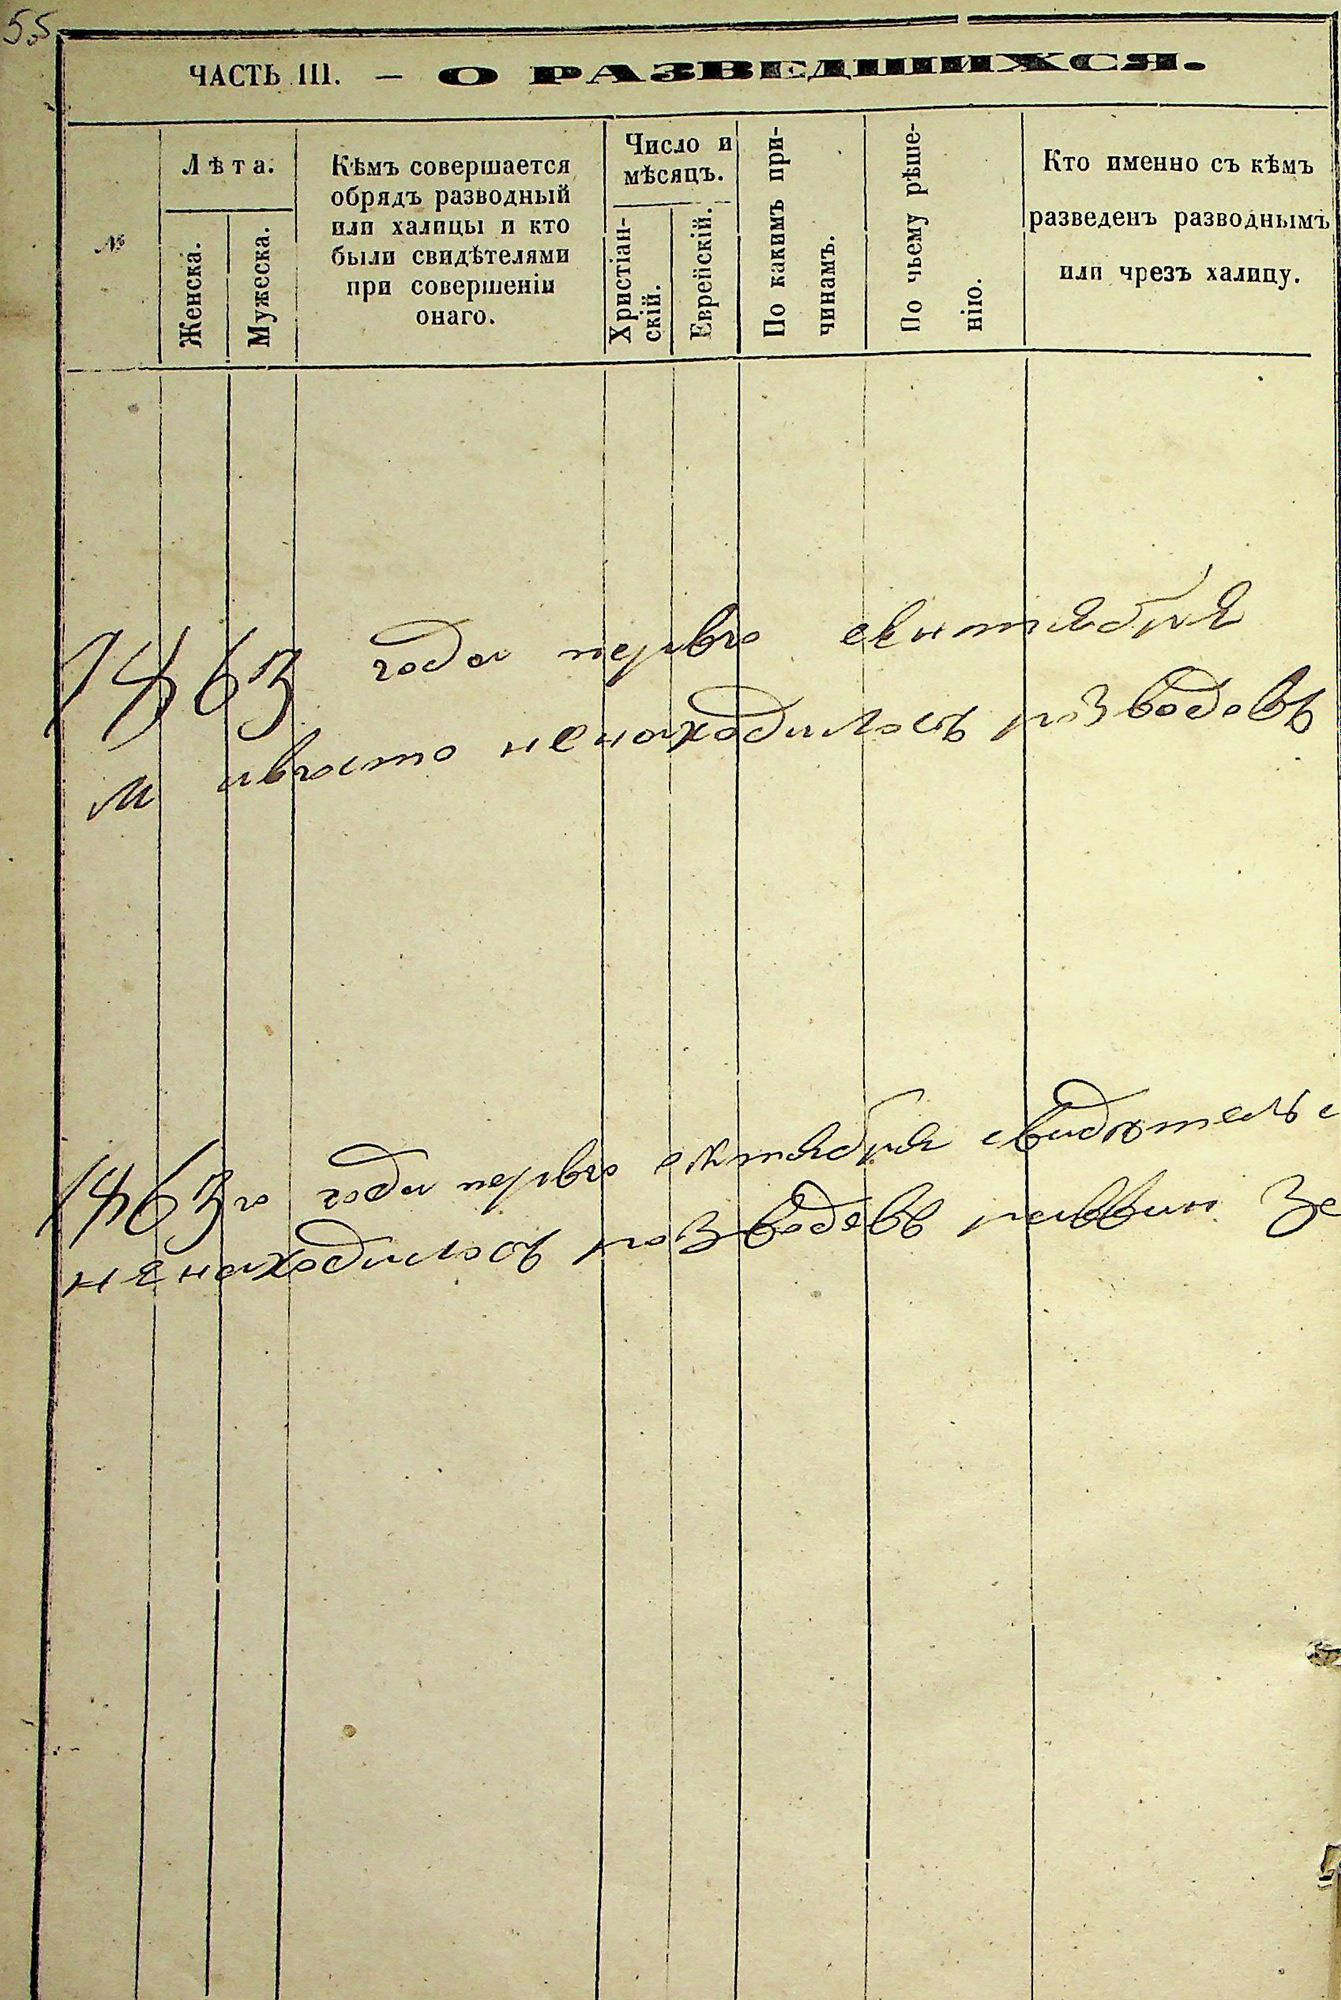 55
ЧАСТЬ III. — О РАЗВЕДШИХСЯ.
№
Лѣта.
Женска.
Мужеска.
Кѣмъ совершается
обрядъ разводный
или халицы и кто
были свидѣтелями
при совершеніи
онаго.
Число и
мѣсяцъ.
Христіан-
скій.
Еврейскій.
По какимъ при-
чинамъ.
По чьему рѣше-
нію.
Кто именно съ кѣмъ
разведенъ разводнымъ
или чрезъ халицу.
1863 года перваго сентября
м ненаходилось разводовъ
1863го года перваго октября свидѣтельс
ненаходилось разводовъ раввин